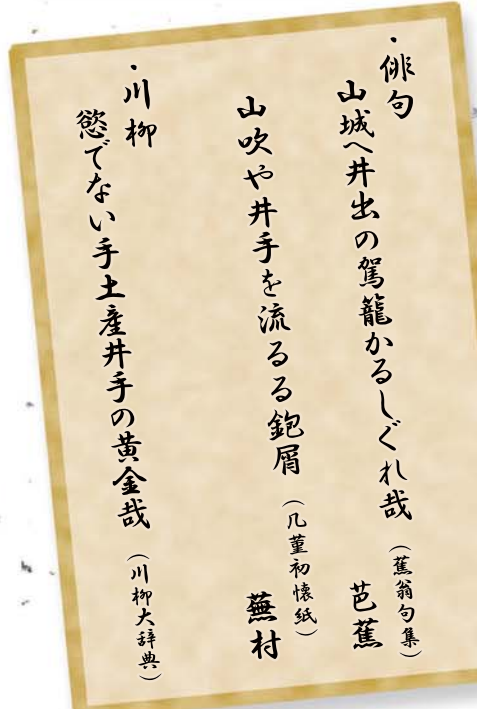 ・俳句
山城へ井出の駕籠かるしぐれ哉
(蕉翁句集)
芭蕉
山吹や井手を流るる鉋屑
(几董初懐紙)
蕪村
・川柳
慾でない手土産井手の黄金哉
(川柳大辞典)